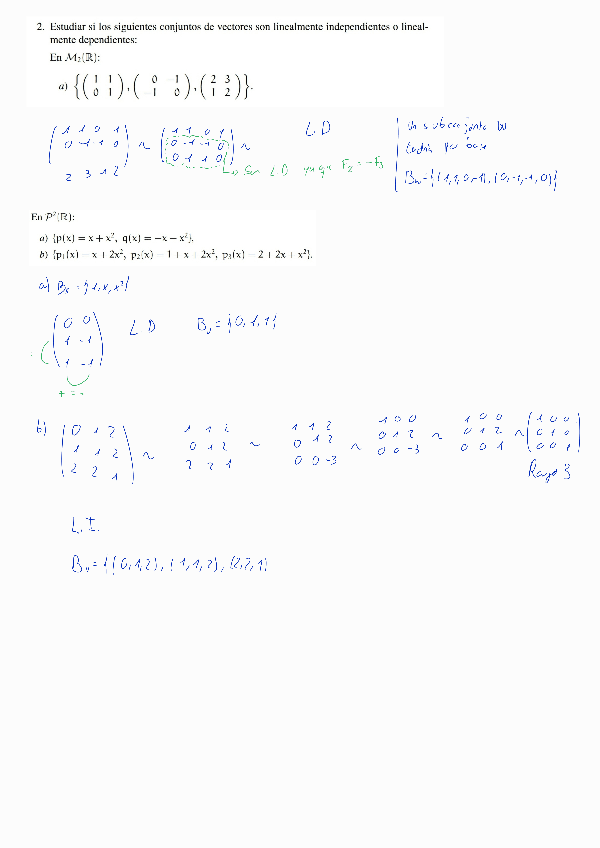 2. Estudiar si los siguientes conjuntos de vectores son linealmente independientes o lineal-
mente dependientes:
En M₂(ℝ):
a) {( 1 1 ; 0 1 ), ( 0 −1 ; −1 0 ), ( 2 3 ; 1 2 )}.
1 1 0 1 ~ 1 1 0 1 ~ L D
0 -1 -1 0 0 -1 -1 0
2 3 1 2 0 1 1 0
Son L D ya que F₂ = -F₃
Un subconjunto
por base
Bu = {(1,1,0,1), (0,-1,-1,0)}
En P²(ℝ):
a) {p(x) = x + x², q(x) = −x − x²}.
b) {p₁(x) = x + 2x², p₂(x) = 1 + x + 2x², p₃(x) = 2 + 2x + x²}.
a) Bc = {1, x, x²}
0 0
1 -1 L D Bu = {0, 1, 1}
1 -1
+ = -
b) 0 1 2 ~ 1 1 2 ~ 1 1 2 ~ 1 0 0 ~ 1 0 0 ~ 1 0 0
1 1 2 0 1 2 0 1 2 0 1 2 0 1 2 0 1 0
2 2 1 2 2 1 0 0 -3 0 0 -3 0 0 1 0 0 1
Rango 3
L.I.
Bu = {(0,1,2), (1,1,2), (2,2,1)